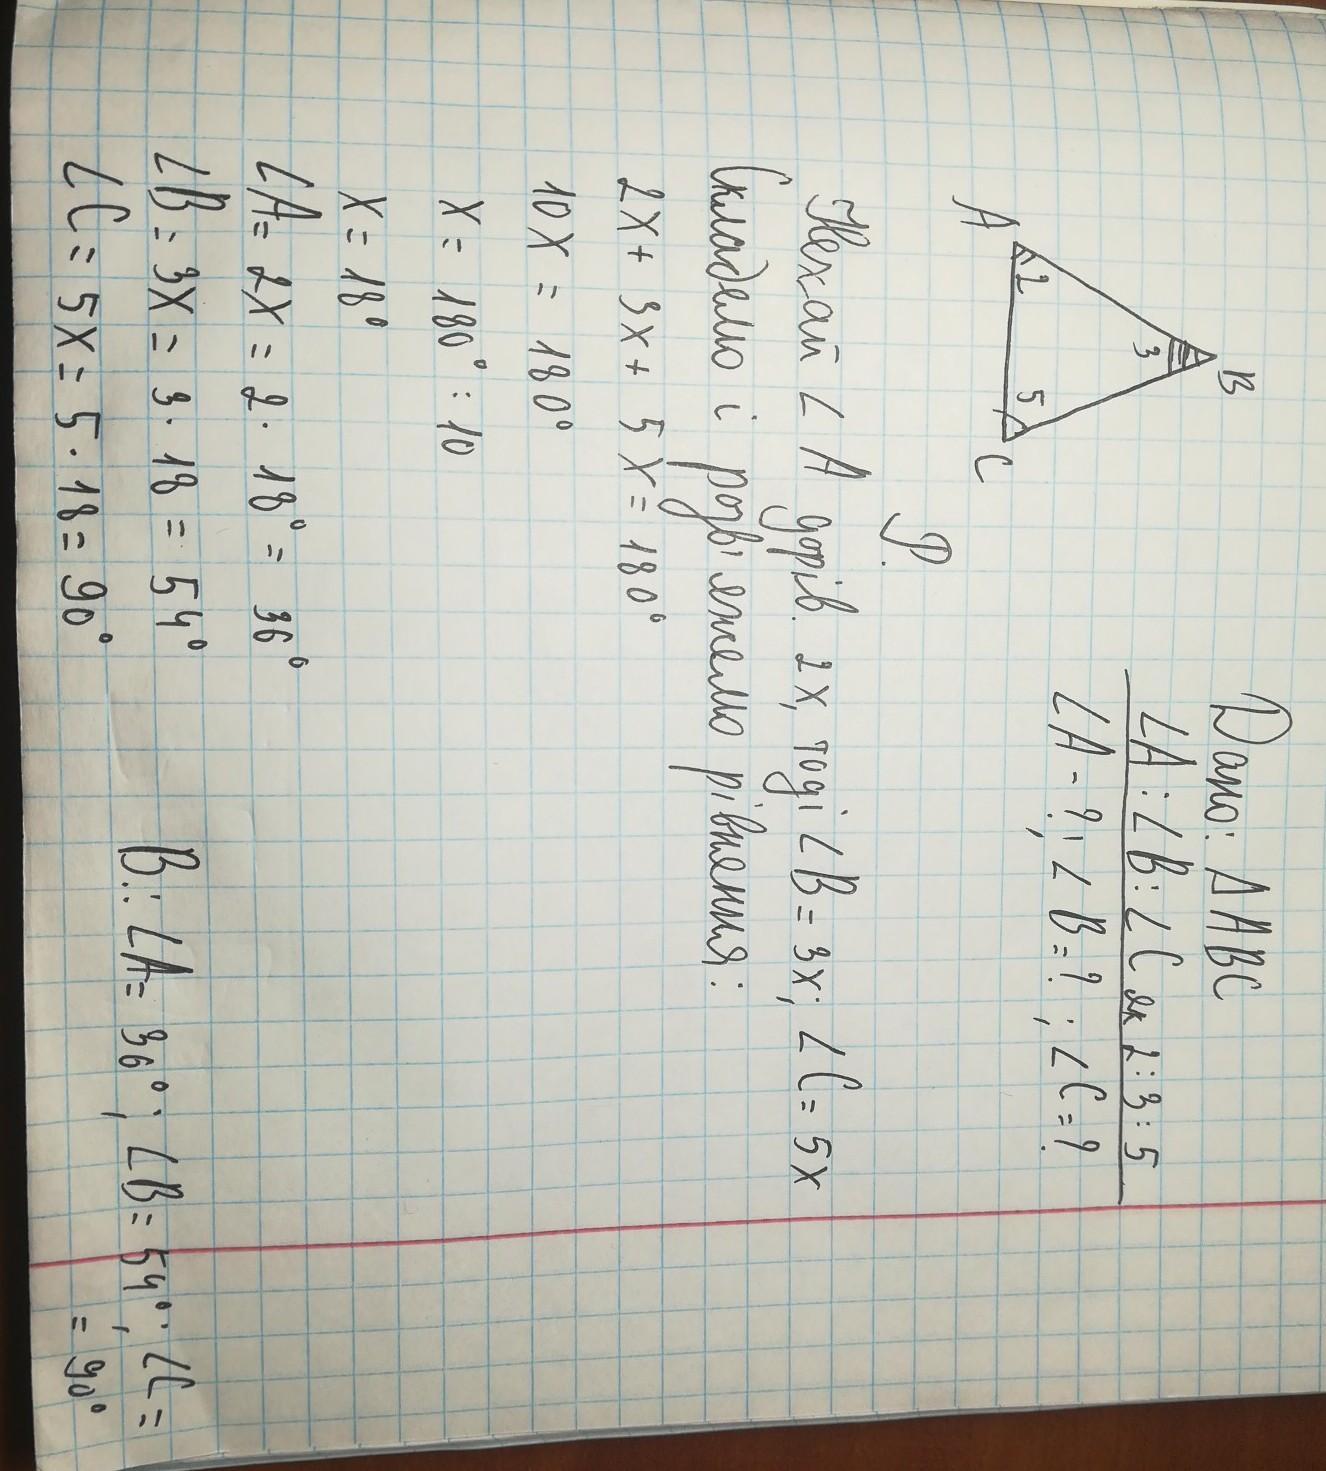 B
A 2 3 5 C
Дано: Δ ABC
∠A : ∠B : ∠C як 2 : 3 : 5
∠A - ?; ∠B = ? ; ∠C = ?
Р.
Нехай ∠A дорів. 2x, тоді ∠B = 3x; ∠C = 5x
Складемо і розв'яжемо рівнення:
2x + 3x + 5x = 180°
10x = 180°
x = 180° : 10
x = 18°
∠A = 2x = 2 · 18° = 36°
∠B = 3x = 3 · 18 = 54°
∠C = 5x = 5 · 18 = 90°
В.: ∠A = 36°; ∠B = 54°; ∠C =
= 90°